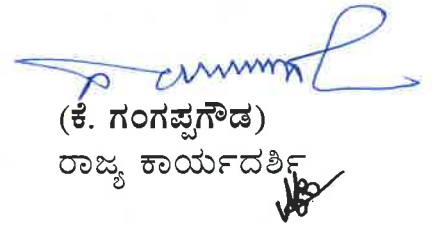 (ಕೆ. ಗಂಗಪ್ಪಗೌಡ)
ರಾಜ್ಯ ಕಾರ್ಯದರ್ಶಿ